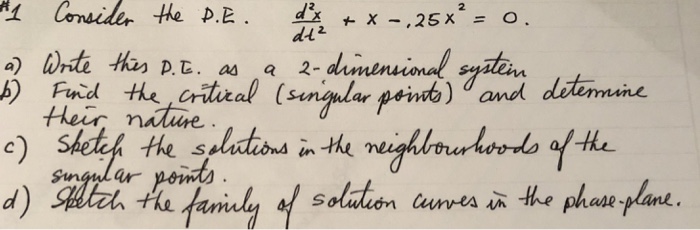 #1 Consider the D.E. d²x/dt² + x - .25x² = 0.
a) Write this D.E. as a 2-dimensional system
b) Find the critical (singular points) and determine
their nature.
c) Sketch the solutions in the neighbourhoods of the
singular points.
d) Sketch the family of solution curves in the phase-plane.